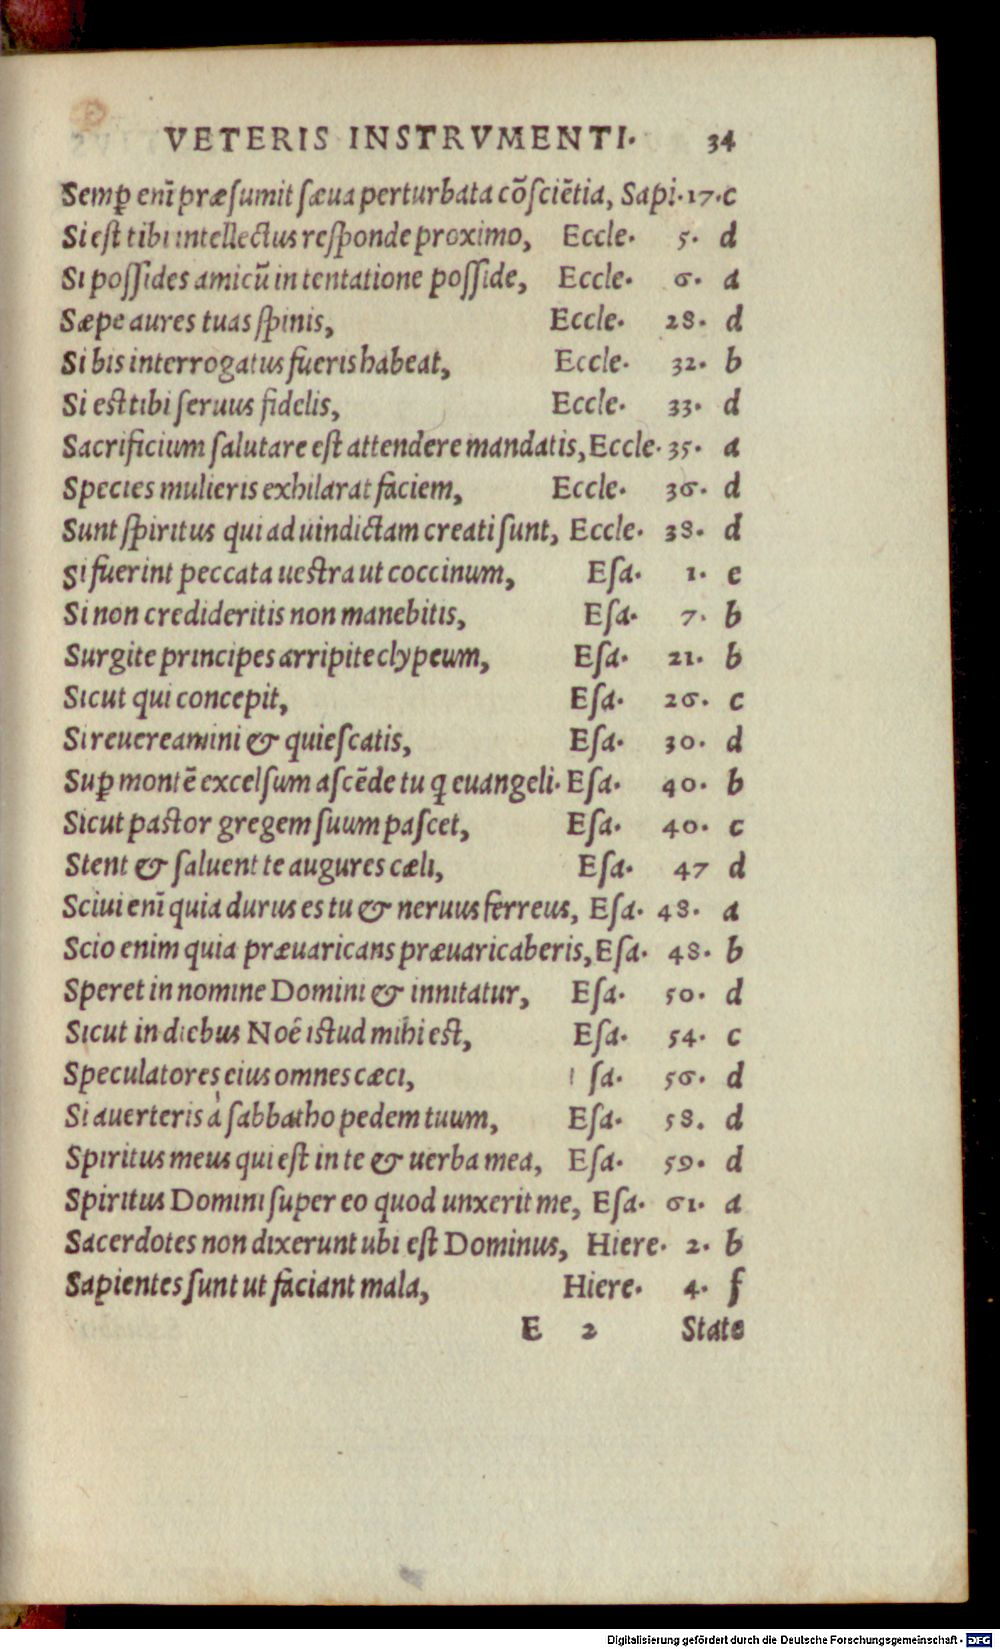 VETERIS INSTRVMENTI. 34
Semꝑ enī præſumit ſæua perturbata cōſciētia, Sapi. 17. c
Si eſt tibi intellectus reſponde proximo, Eccle. 5. d
Si poſſides amicū in tentatione poſſide, Eccle. 6. a
Sæpe aures tuas ſpinis, Eccle. 28. d
Si bis interrogatus fueris habeat, Eccle. 32. b
Si est tibi ſeruus fidelis, Eccle. 33. d
Sacrificium ſalutare eſt attendere mandatis, Eccle. 35. a
Species mulieris exhilarat faciem, Eccle. 36. d
Sunt ſpiritus qui ad uindictam creati ſunt, Eccle. 38. d
Si fuerint peccata uestra ut coccinum, Eſa. 1. e
Si non credideritis non manebitis, Eſa. 7. b
Surgite principes arripite clypeum, Eſa. 21. b
Sicut qui concepit, Eſa. 26. c
Si reuereamini & quieſcatis, Eſa. 30. d
Suꝑ montē excelſum aſcēde tu ꝗ euangeli. Eſa. 40. b
Sicut pastor gregem ſuum paſcet, Eſa. 40. c
Stent & ſaluent te augures cæli, Eſa. 47 d
Sciui enī quia durus es tu & neruus ferreus, Eſa. 48. a
Scio enim quia præuaricans præuaricaberis, Eſa. 48. b
Speret in nomine Domini & innitatur, Eſa. 50. d
Sicut in diebus Noē istud mihi est, Eſa. 54. c
Speculatores eius omnes cæci, ſa. 56. d
Si auerteris à ſabbatho pedem tuum, Eſa. 58. d
Spiritus meus qui eſt in te & uerba mea, Eſa. 59. d
Spiritus Domini ſuper eo quod unxerit me, Eſa. 61. a
Sacerdotes non dixerunt ubi eſt Dominus, Hiere. 2. b
Sapientes ſunt ut faciant mala, Hiere. 4. f
E 2 State
Digitalisierung gefördert durch die Deutsche Forschungsgemeinschaft - DFG